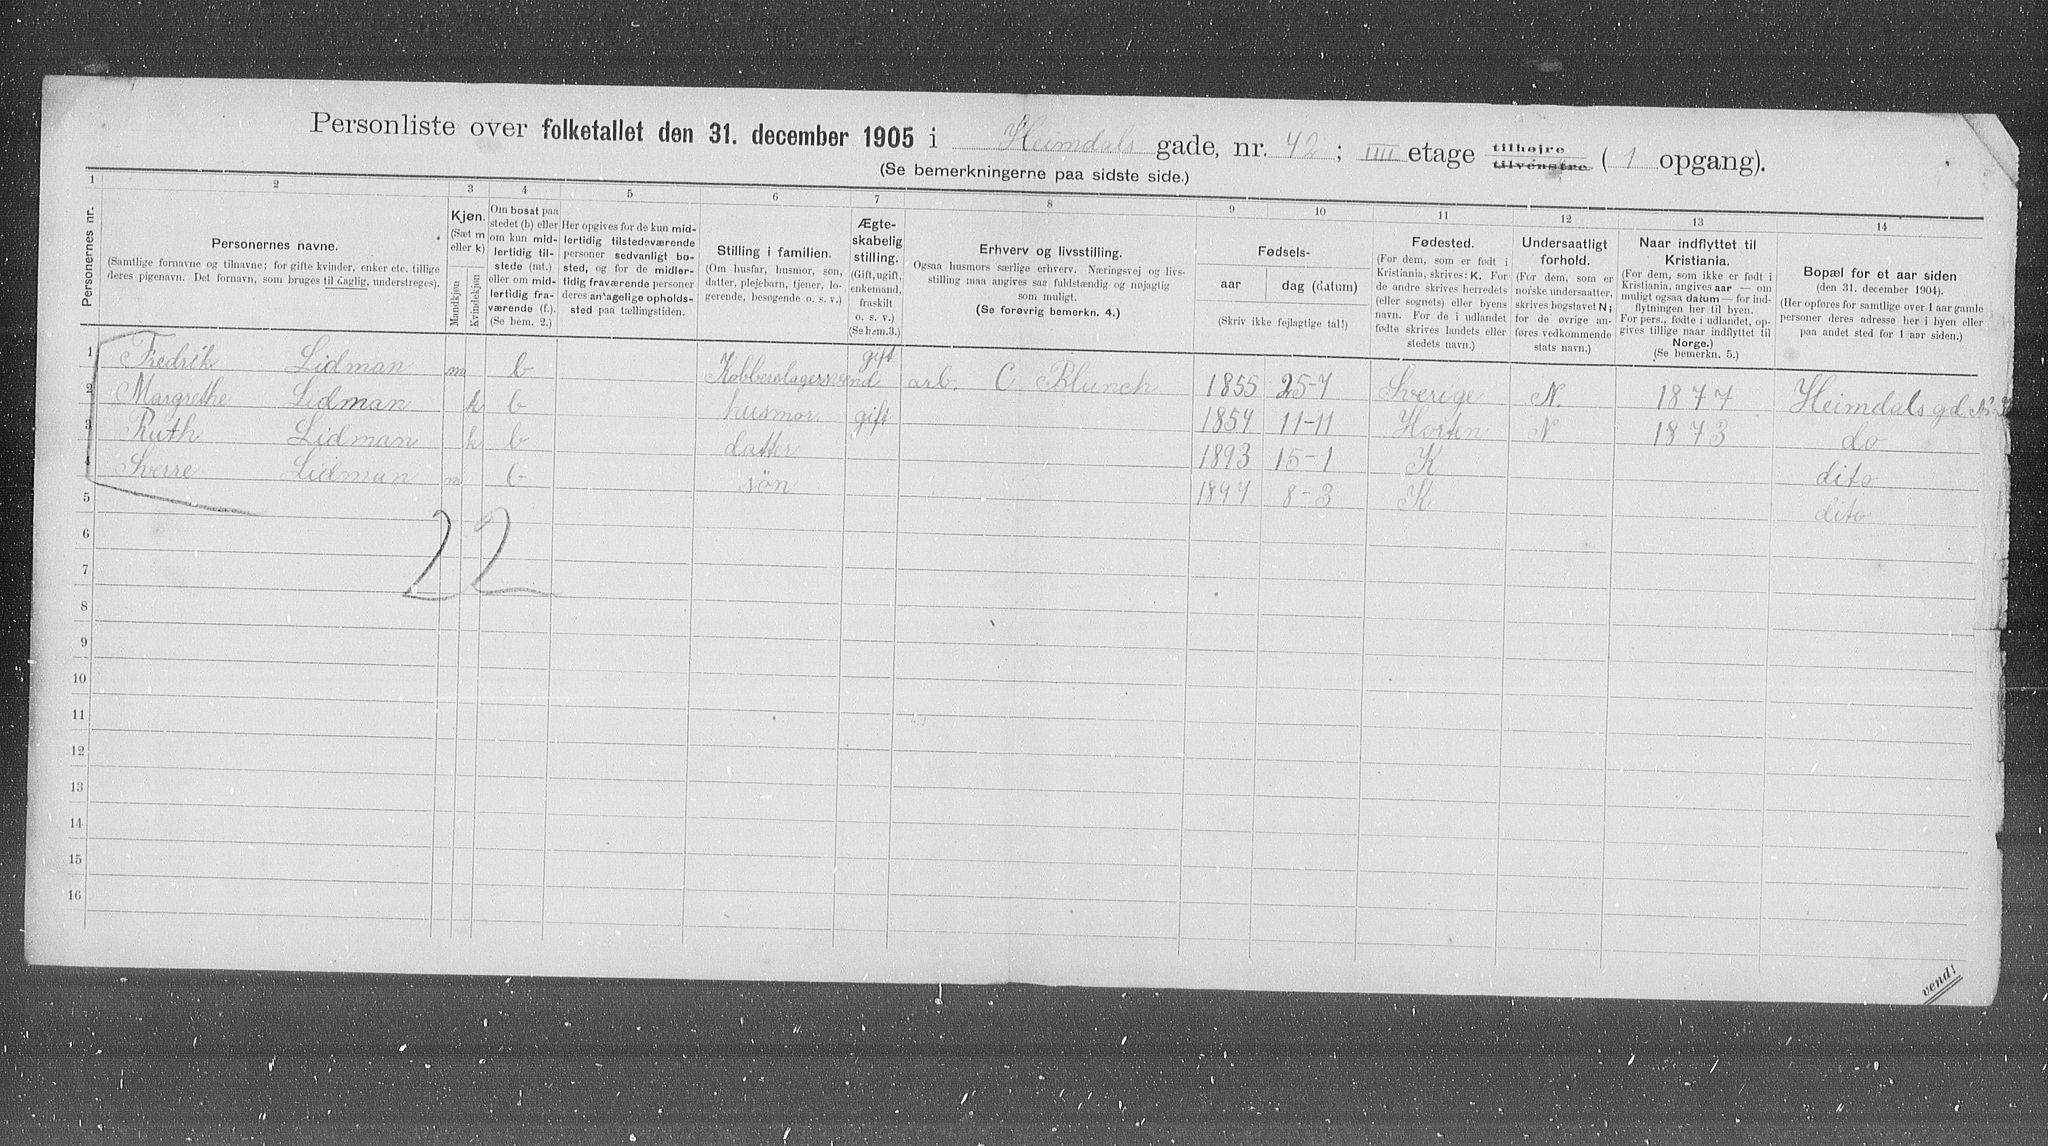 Personliste over folketallet den 31. december 1905 i Heimdals gade, nr. 42; IIII etage tilhøjre tilvenstre (1 opgang).
(Se bemerkningerne paa sidste side.)
1 2 3 4 5 6 7 8 9 10 11 12 13 14
Personernes nr.
Personernes navne.
(Samtlige fornavne og tilnavne; for gifte kvinder, enker etc. tillige
deres pigenavn. Det fornavn, som bruges til daglig, understreges).
Kjøn.
(Sæt m
eller k)
Mandkjøn
Kvindekjøn
Om bosat paa
stedet (b) eller
om kun mid-
lertidig til-
stede (mt.)
eller om mid-
lertidig fra-
værende (f.).
(Se bem. 2.)
Her opgives for de kun mid-
lertidig tilstedeværende
personer sedvanligt bo-
sted, og for de midler-
tidig fraværende personer
deres antagelige opholds-
sted paa tællingstiden.
Stilling i familien.
(Om husfar, husmor, søn,
datter, plejebarn, tjener, lo-
gerende, besøgende o. s. v.)
Ægte-
skabelig
stilling.
(Gift, ugift,
enkemand,
fraskilt
o. s. v.)
(Se bem. 3.)
Erhverv og livsstilling.
Ogsaa husmors særlige erhverv. Næringsvej og livs-
stilling maa angives saa fuldstændig og nøjagtig
som muligt.
(Se forøvrig bemerkn. 4.)
Fødsels-
aar
dag (datum)
(Skriv ikke fejlagtige tal!)
Fødested.
(For dem, som er født i
Kristiania, skrives: K. For
de andre skrives herredets
(eller sognets) eller byens
navn. For de i udlandet
fødte skrives landets eller
stedets navn.)
Undersaatligt
forhold.
(For dem, som er
norske undersaatter,
skrives bogstavet N;
for de øvrige an-
føres vedkommende
stats navn.)
Naar indflyttet til
Kristiania.
(For dem, som ikke er født i
Kristiania, angives aar — om
muligt ogsaa datum — for ind-
flytningen her til byen.
For pers., fødte i udlandet, op-
gives tillige naar indflyttet til
Norge.)
(Se bemerkn. 5.)
Bopæl for et aar siden
(den 31. december 1904).
(Her opføres for samtlige over 1 aar gamle
personer deres adresse her i byen eller
paa andet sted for 1 aar siden.)
1 Fredrik Lidman m b Kobberslagersvend gift arb. C. Blunch 1855 25-7 Sverige N. 1877 Heimdals gd No
2 Margrethe Lidman k b husmor. gift 1854 11-11 Horten N 1873 do
3 Ruth Lidman k b datter 1893 15-1 K dito
4 Sverre Lidman m b søn 1897 8-3 K dito
5
22
6
7
8
9
10
11
12
13
14
15
16
vend!